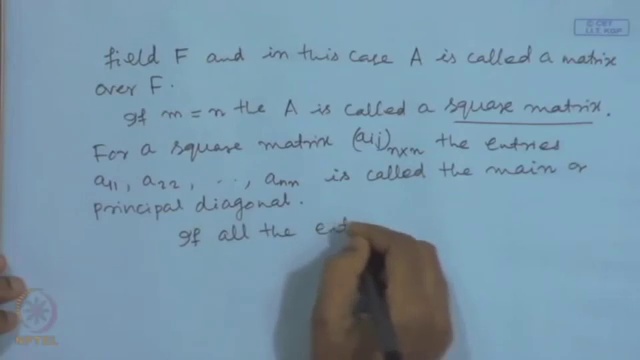 © CET
I.I.T. KGP
field F and in this case A is called a matrix
over F.
If m = n the A is called a square matrix.
For a square matrix (aij)n×n the entries
a11, a22, . . ., ann is called the main or
principal diagonal.
If all the ent
NPTEL